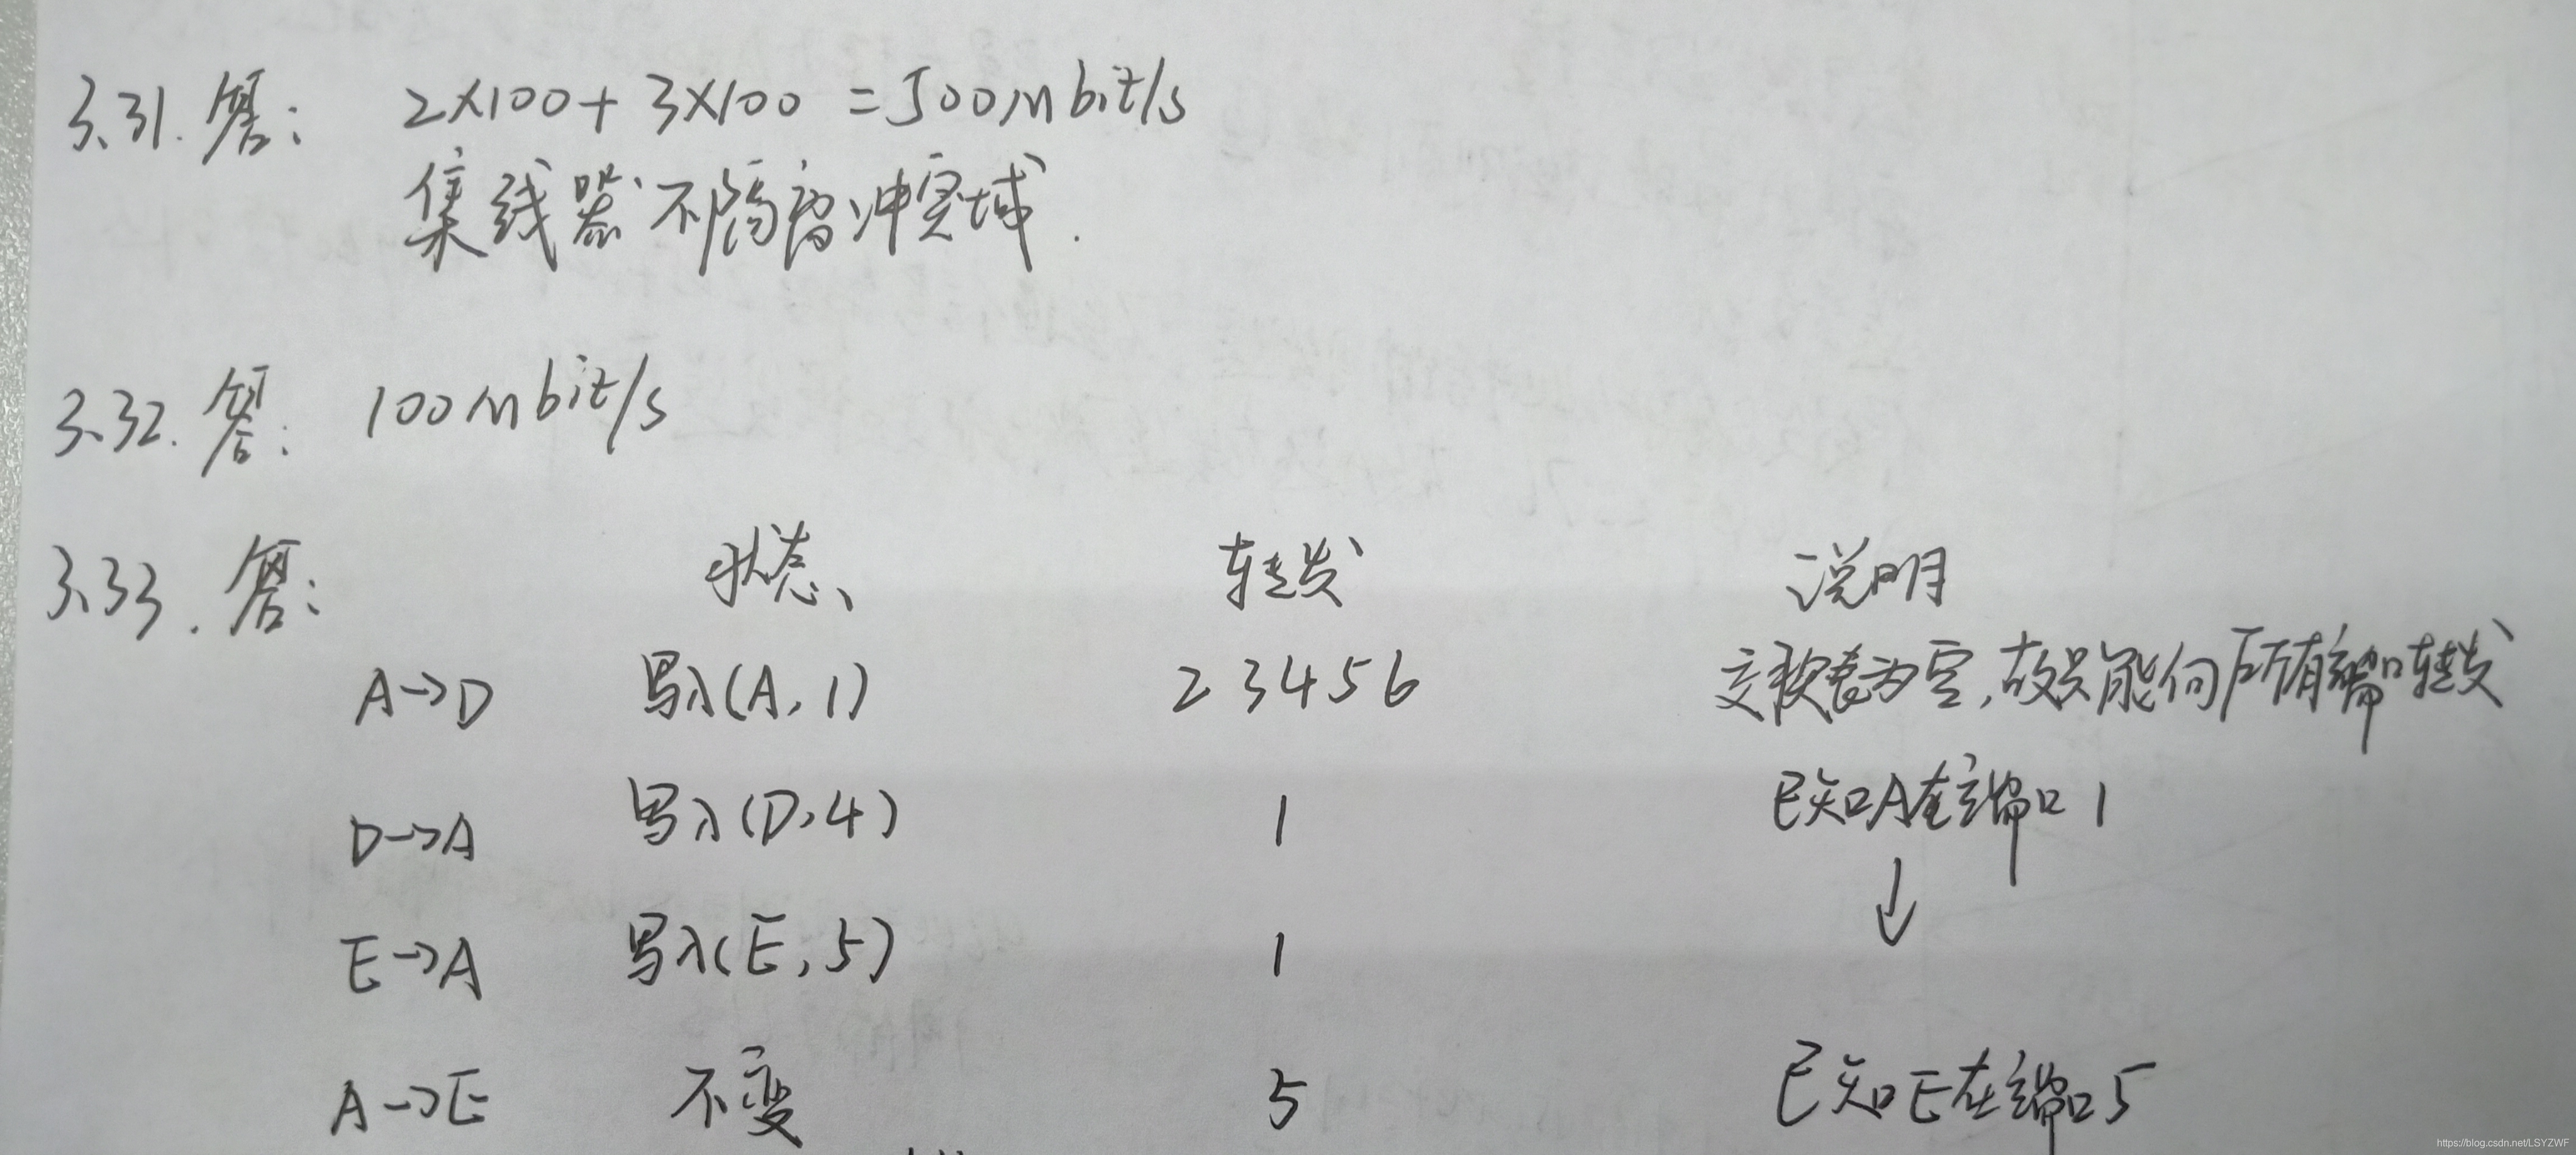 3.31. 答： 2×100+3×100 =500mbit/s
集线器不隔离冲突域.
3.32. 答： 100mbit/s
3.33. 答： 状态 转发 说明
A→D 写入(A,1) 23456 交换表为空,故只能向所有端口转发
D→A 写入(D,4) 1 已知A在端口1
↓
E→A 写入(E,5) 1
A→E 不变 5 已知E在端口5
https://blog.csdn.net/LSYZWF